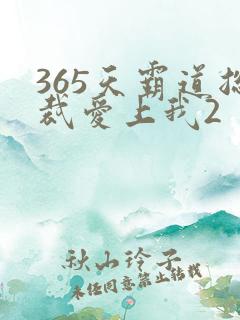 365天霸道总
裁爱上我2
秋山玲子
未经同意禁止转载